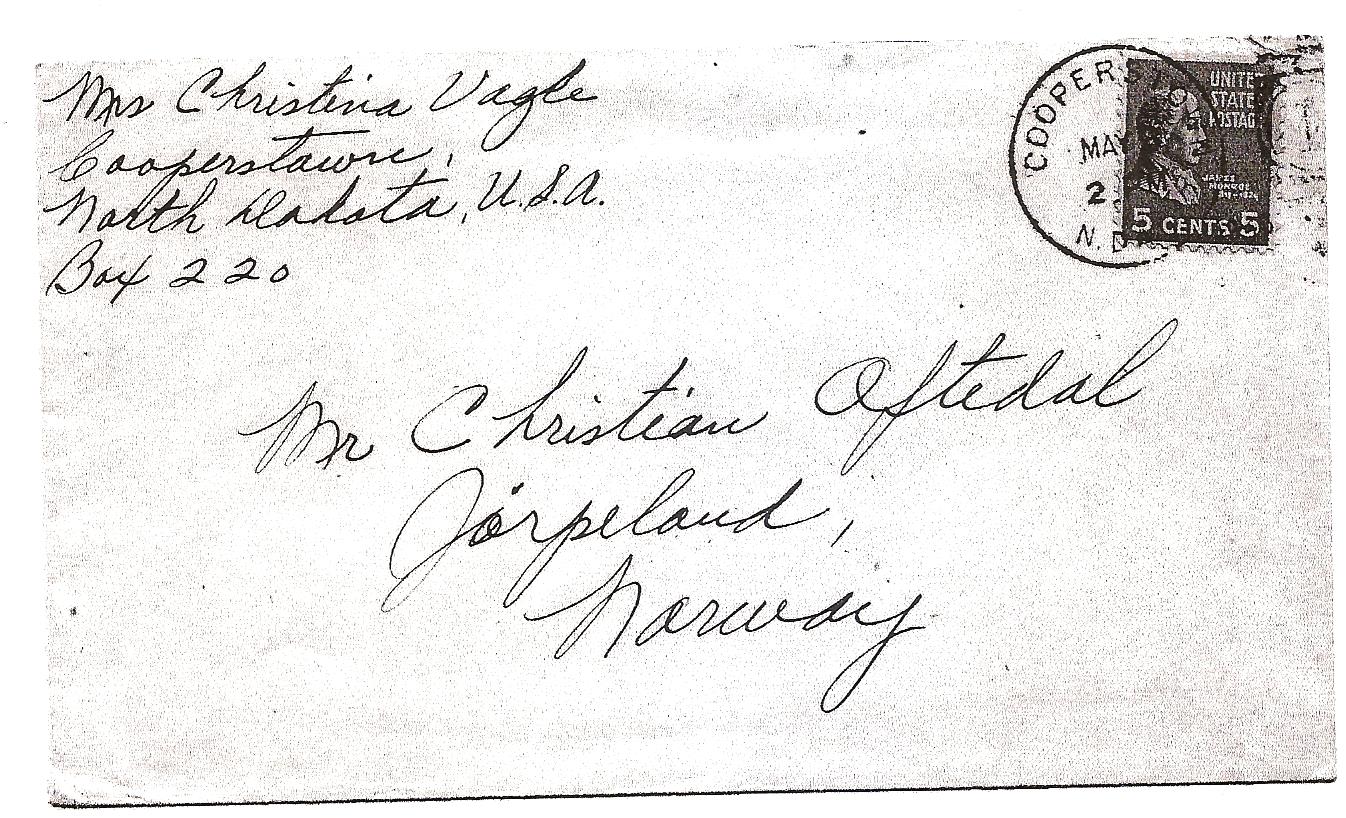 Mrs Christina Vagle
Cooperstown,
North Dakota, U.S.A.
Box 220
COOPERS
MAY
2
N.D
UNITE
STATE
POSTAG
JAMES
MONROE
5 CENTS 5
Mr Christian Oftedal
Jørpeland,
Norway